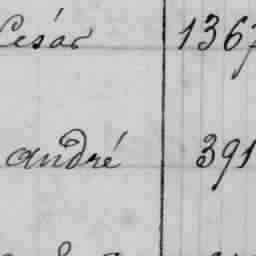 César 1367
André 391